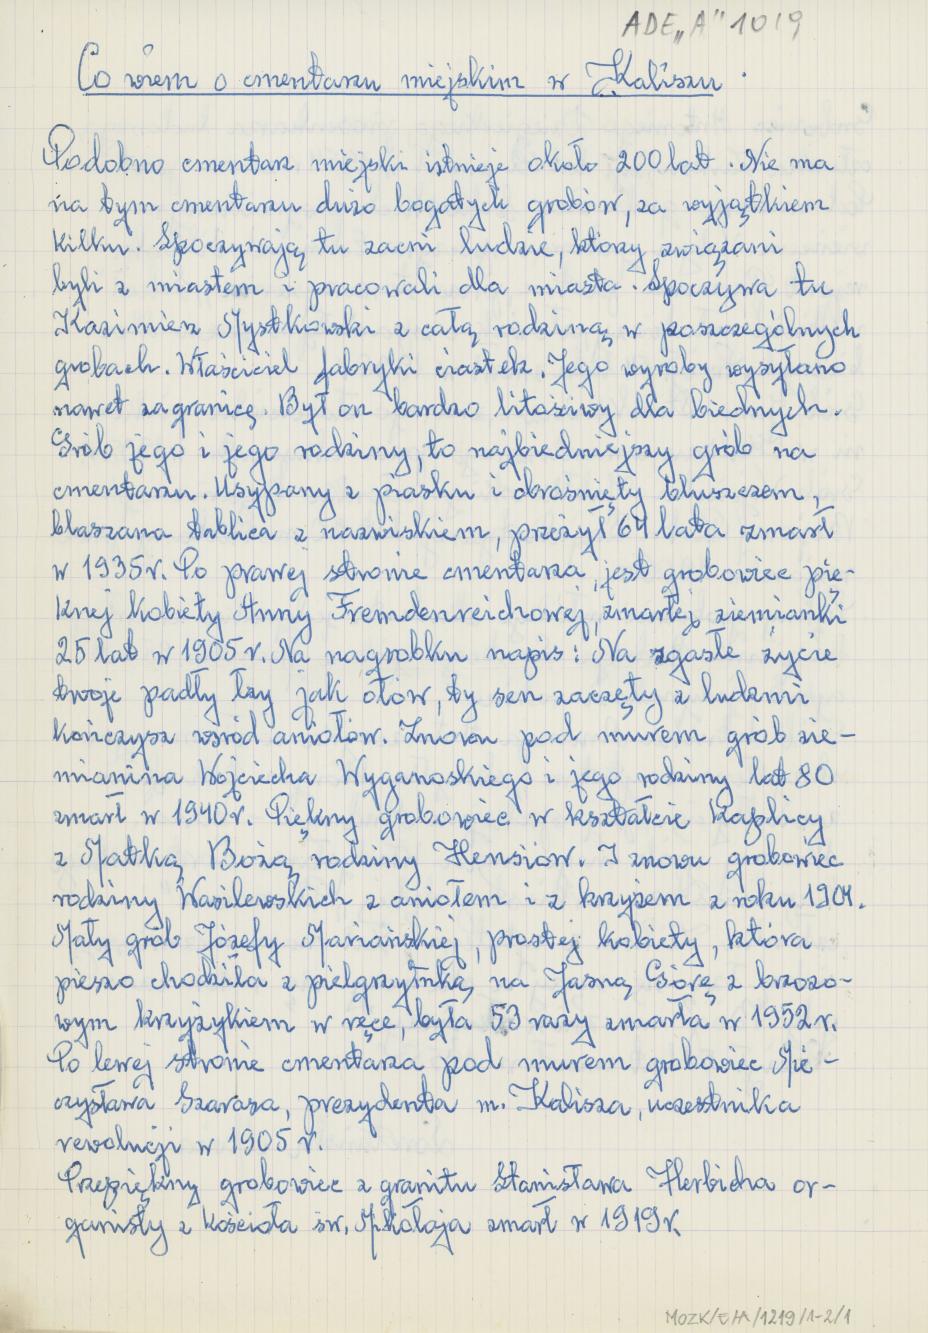 ADE „A" 1019
Co wiem o cmentarzu miejskim w Kaliszu.
Podobno cmentarz miejski istnieje około 200 lat. Nie ma
na tym cmentarzu dużo bogatych grobów, za wyjątkiem
kilku. Spoczywają tu zacni ludzie, którzy związani
byli z miastem i pracowali dla miasta. Spoczywa tu
Kazimierz Mystkowski z całą rodziną w poszczególnych
grobach. Właściciel fabryki ciastek. Jego wyroby wysyłano
nawet zagranicę. Był on bardzo litościwy dla biednych.
Grób jego i jego rodziny, to najbiedniejszy grób na
cmentarzu. Usypany z piasku i obrośnięty bluszczem,
blaszana tablica z nazwiskiem, przeżył 64 lata zmarł
w 1935 r. Po prawej stronie cmentarza, jest grobowiec pię-
knej kobiety Anny Fremdenreichowej, zmarłej ziemianki
25 lat w 1905 r. Na nagrobku napis: Na zgasłe życie
twoje padły łzy jak ołów, ty sen zaczęty z ludźmi
kończysz wśród aniołów. Znowu pod murem grób zie-
mianina Wojciecha Wyganoskiego i jego rodziny lat 80
zmarł w 1940 r. Piękny grobowiec w kształcie kaplicy
z Matką Bożą rodziny Hensiów. I znowu grobowiec
rodziny Wasilewskich z aniołem i z krzyżem z roku 1904.
Mały grób Józefy Mariańskiej, prostej kobiety, która
pieszo chodziła z pielgrzymką na Jasną Górę z brzozo-
wym krzyżykiem w ręce, była 53 razy zmarła w 1952 r.
Po lewej stronie cmentarza pod murem grobowiec Mie-
czysława Szarasa, prezydenta m. Kalisza, uczestnika
rewolucji w 1905 r.
Przepiękny grobowiec z granitu Stanisława Herbicha or-
ganisty z kościoła św. Mikołaja zmarł w 1919 r.
MOZK/E/A/1219/1-2/1